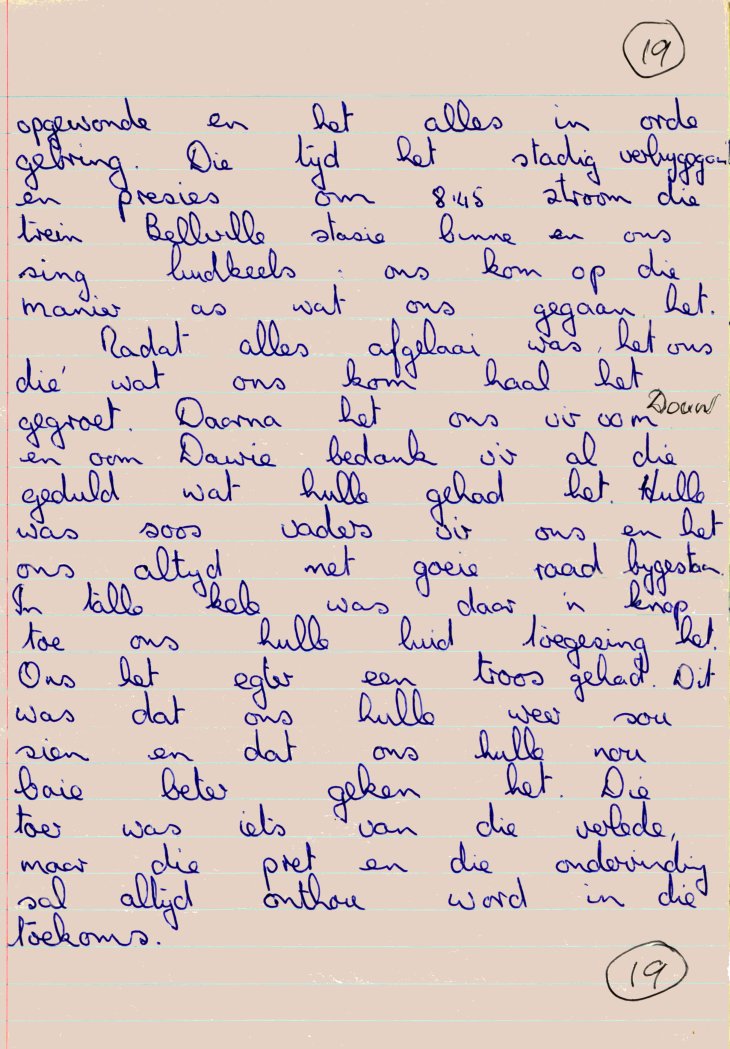 19
opgewonde en het alles in orde
gebring. Die tyd het stadig verbygegaan
en presies om 8.45 stroom die
trein Bellville stasie binne en ons
sing luidkeels : ons kom op die
manier as wat ons gegaan het.
Nadat alles afgelaai was, het ons
dié wat ons kom haal het
gegroet. Daarna het ons vir oom Douw
en oom Dawie bedank vir al die
geduld wat hulle gehad het. Hulle
was soos vaders vir ons en het
ons altyd met goeie raad bygestaan.
In talle kele was daar 'n knop
toe ons hulle luid toegesing het.
Ons het egter een troos gehad. Dit
was dat ons hulle weer sou
sien en dat ons hulle nou
baie beter geken het. Die
toer was iets van die verlede,
maar die pret en die ondervinding
sal altyd onthou word in die
toekoms.
19